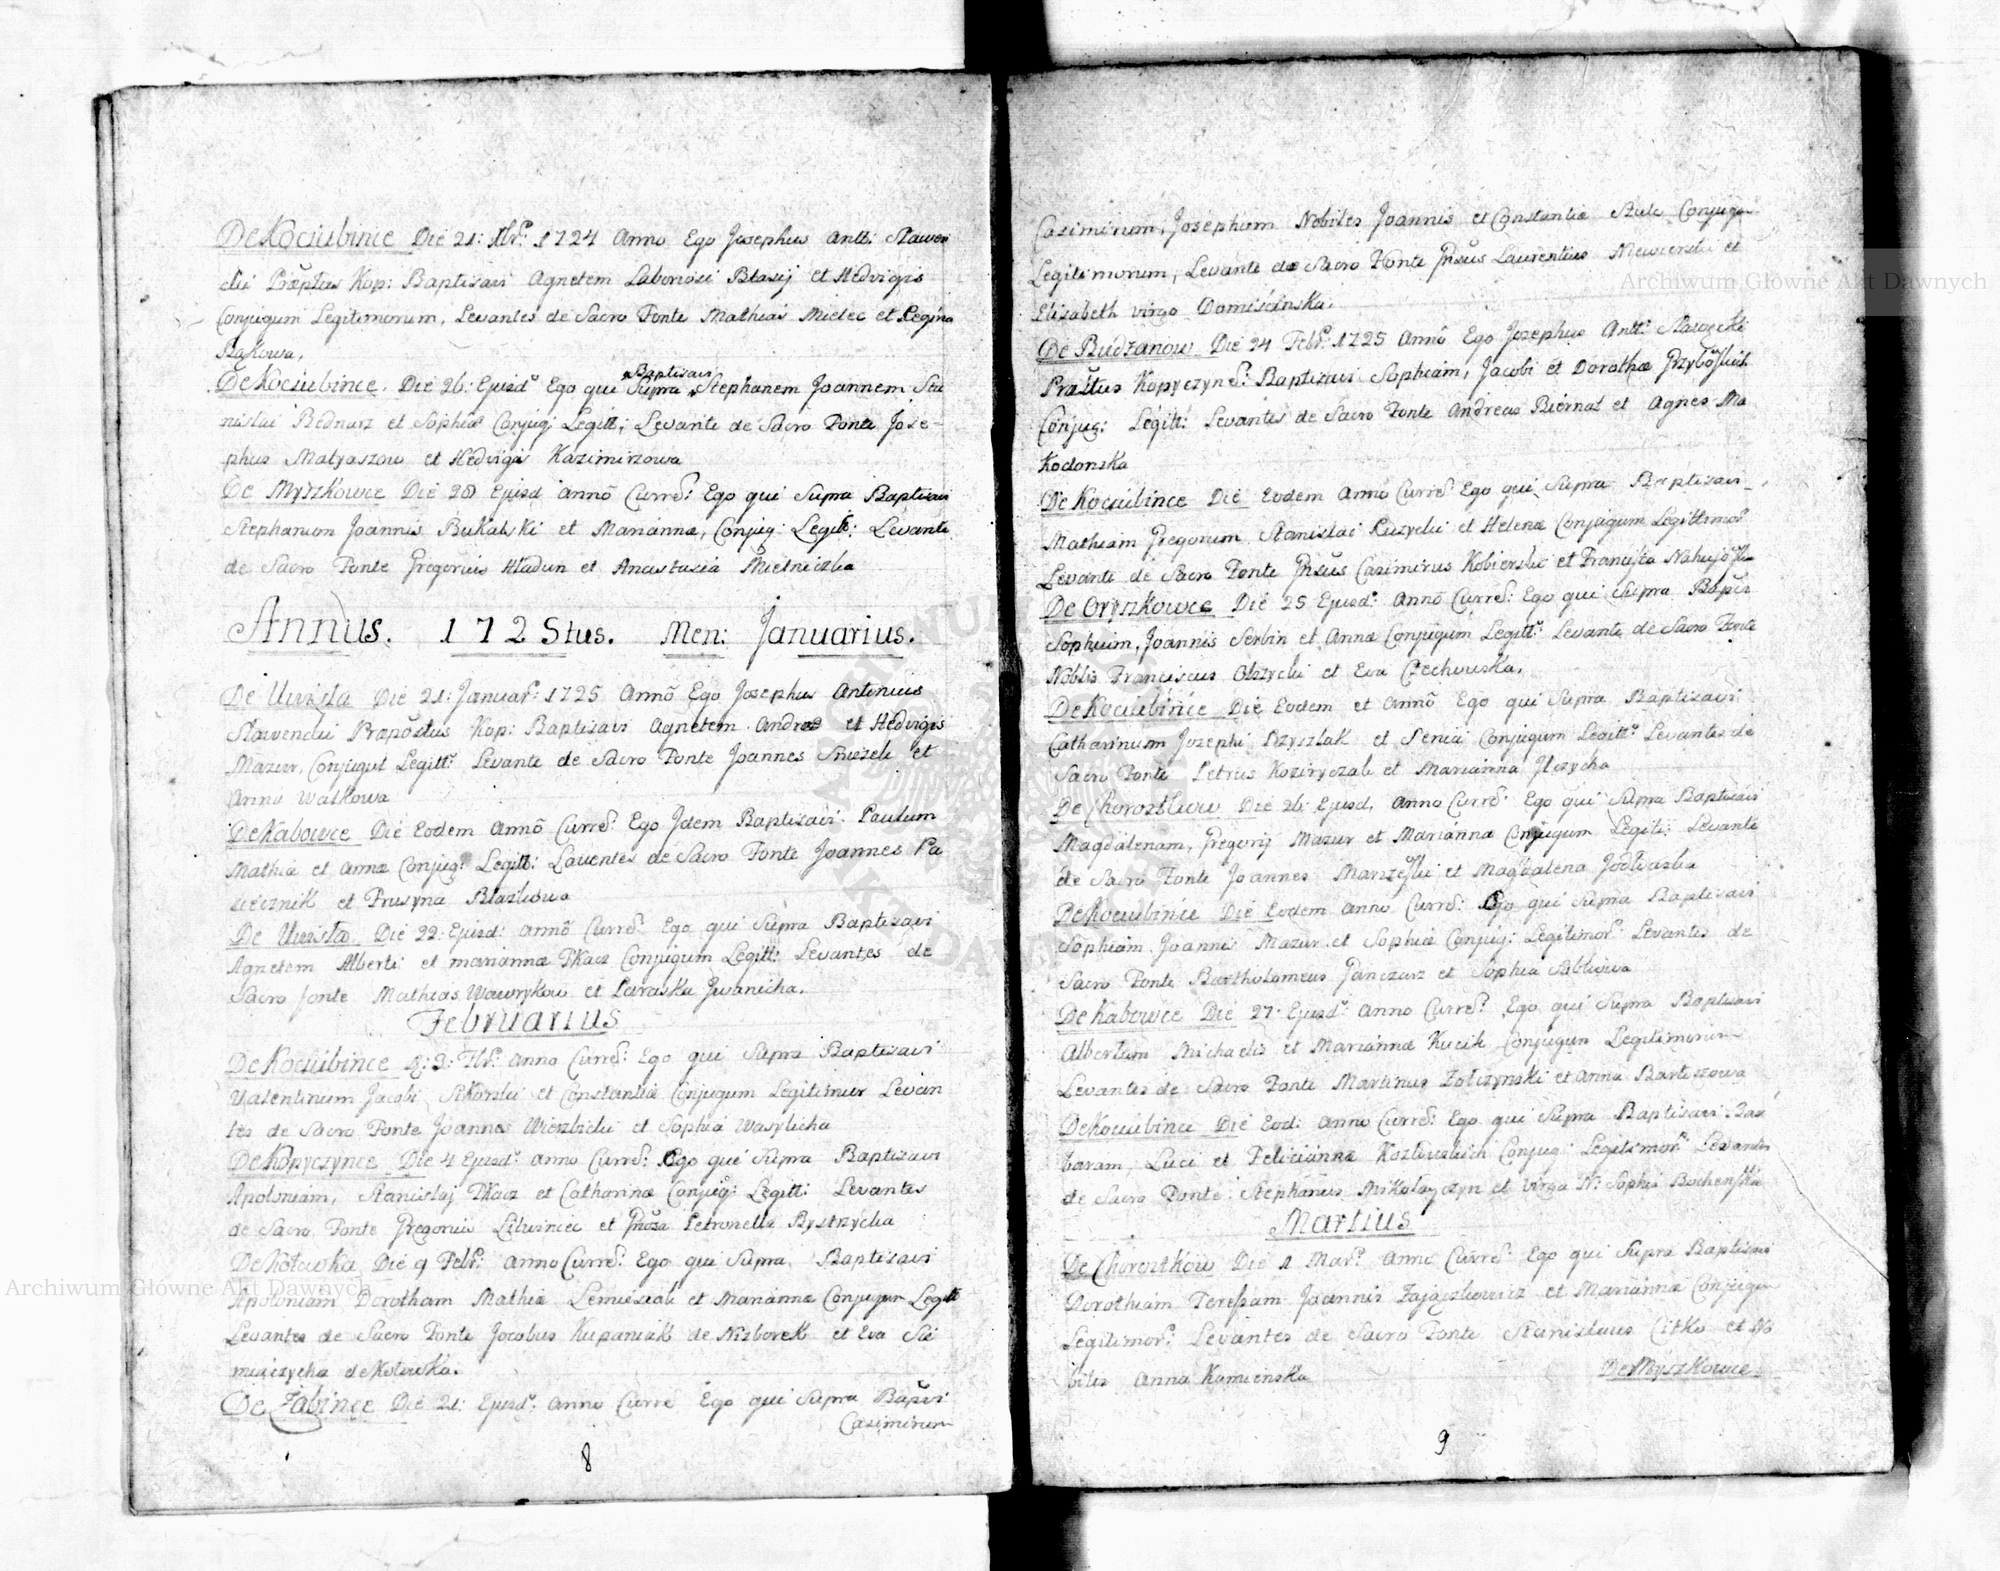 De Kociubince Die 21: Xbr: 1724 Anno Ego Josephus Antt: Slawen
cki Præptus Kop: Baptisavi Agnetem Laboriosi Blasij et Hedvigis
Conjugum Legitimorum, Levantes de Sacro Fonte Mathias Mielec et Regina
Bąkowa,
De Kociubince. Die 26: Ejusd: Ego qui Supra Baptisavi Stephanem Joannem Sta
nislai Bednarz et Sophiæ Conjug: Legitt: Levante de Sacro Fonte Jose-
phus Matyaszow et Hedviga Kazimirzowa
De Myszkowce Die 28 Ejusd Anno Curre: Ego qui Supra Baptisavi
Stephanum Joannis Bukalski et Mariannæ, Conjug: Legit: Levante
de Sacro Fonte Gregorius Hładun et Anastasia Mielniczka
Annus. 1725tus. Men: Januarius.
De Uwisła Die 21: Januar: 1725 Anno Ego Josephus Antonius
Slawencki Præpositus Kop: Baptisavi Agnetem Andreæ et Hedvigis
Mazur, Conjugum Legitt: Levante de Sacro Fonte Joannes et
Anna Walkowa
De Kabowce Die Eodem Anno Curre: Ego Idem Baptisavi Paulum
Mathiæ et Annæ Conjug: Legitt: Laventes de Sacro Fonte Joannes Pa
siecznik et Prusyna Blazkowa
De Uwisła Die 22: Ejusd: Anno Curre: Ego qui Supra Baptisavi
Agnetem Alberti et Mariannæ Tkacz Conjugum Legitt: Levantes de
Sacro fonte Mathias Wawrykow et Paraska Iwanicha.
Februarius
De Kociubince D: 2: Fbr: Anno Curre: Ego qui Supra Baptisavi
Valentinum Jacobi Sikorski et Constantiæ Conjugum Legitimor Levan
tes de Sacro Fonte Joannes Wierzbicki et Sophia Wasylicha
De Kopyczynce Die 4 Ejusd: Anno Curre: Ego qui Supra Baptisavi
Apoloniam, Stanislaj Tkacz et Catharinæ Conjug: Legitt: Levantes
de Sacro Fonte Gregorius Litwiniec et Petronella Bystrzycka
De Kotowka Die 9 Febr: Anno Curre: Ego qui Supra Baptisavi
Apoloniam Dorotham Mathiæ Lemieszak et Mariannæ Conjugum Legitt
Levantes de Sacro Fonte Jacobus Kupaniak de Nizborek et Eva Sie
mięczycha de Kotowka.
De Żabince Die 21: Ejusd: Anno Curre Ego qui Supra Bapsvi
Casimirum
8
Casimirum, Josephum Nobiles Joannis et Constantiæ Szulc Conjugu
Legitimorum, Levante de Sacro Fonte Laurentius et
Elisabeth virgo
De Budzanow Die 24 Febr: 1725 Anno Ego Josephus Antt: Slawęcki
Præptus Kopyczynce: Baptisavi Sophiam, Jacobi et Dorothæ
Conjug: Legitt: Levantes de Sacro Fonte Andreas Biernat et Agnes Ma
Kodonska
De Kociubince Die Eodem Anno Curre Ego qui Supra Baptisavi
Mathiam Gregorium Stanislai Ruzycki et Helenæ Conjugum Legittimor
Levante de Sacro Fonte Casimirus Kobierski et Francisca
De Oryszkowce Die 25 Ejusd: Anno Curre: Ego qui Supra Bapsvi
Sophiam, Joannis Serbin et Annæ Conjugum Legitt: Levante de Sacro Fonte
Noblis Franciscus Olszycki et Eva Czechowska.
De Kociubince Die Eodem et Anno Ego qui Supra Baptisavi
Catharinam Josephi et Conjugum Legitt: Levantes de
Sacro Fonte Petrus et Marianna Ilczycha
De Chorostkow Die 26: Ejusd. Anno Curre: Ego qui Supra Baptisavi
Magdalenam, Gregorij Mazur et Mariannæ Conjugum Legiti: Levante
de Sacro Fonte Joannes et Magdalena
De Kociubince Die Eodem Anno Curre: Ego qui Supra Baptisavi
Sophiam Joannis Mazur et Sophiæ Conjug: Legitimor: Levantes de
Sacro Fonte Bartholomeus Janczarz et Sophia
De Kabowce Die 27: Ejusd: Anno Curre: Ego qui Supra Baptisavi
Albertum Michaelis et Mariannæ Kucik Conjugum Legitimorum
Levantes de Sacro Fonte Martinus Zołczynski et Anna Bartoszowa
De Kociubince Die Eod: Anno Curre: Ego qui Supra Baptisavi: Bar
baram, Luci et Felicianna Kozłowskich Conjug: Legitimor: Levantes
de Sacro Fonte: Stephanus Mikołayczyn et virgo N: Sophia Bochenska
Martius
De Chorostkow Die 1 Mar: Anno Curre Ego qui Supra Baptisavi
Dorotheam Teresam Joannis Zajączkowicz et Mariannæ Conjugu
Legitimor: Levantes de Sacro Fonte Stanislaus Citko et No
biles Anna Kamienska
De Myszkowce
9
Archiwum Główne Akt Dawnych
Archiwum Główne Akt Dawnych